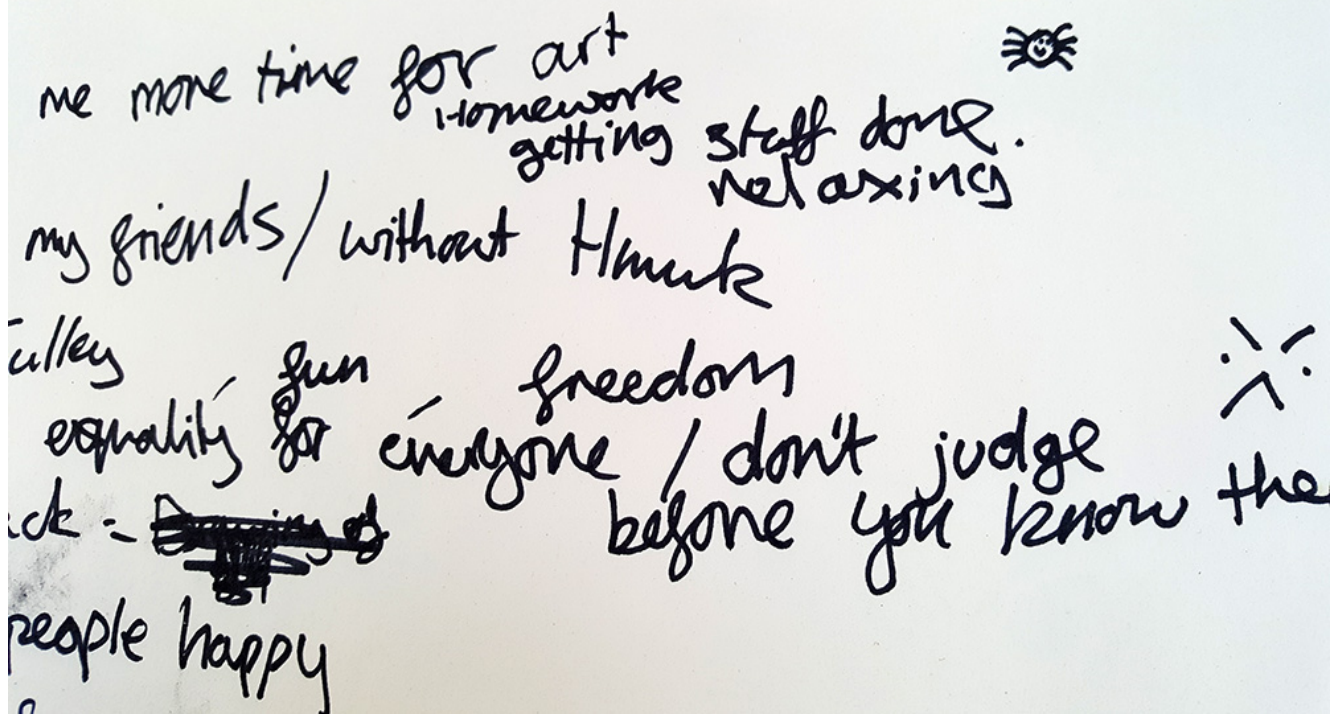 me more time for art
Homework
getting stuff done.
relaxing
my friends / without Hmwk
ulley
fun freedom
equality for everyone / don't judge
before you know the
ck =
people happy